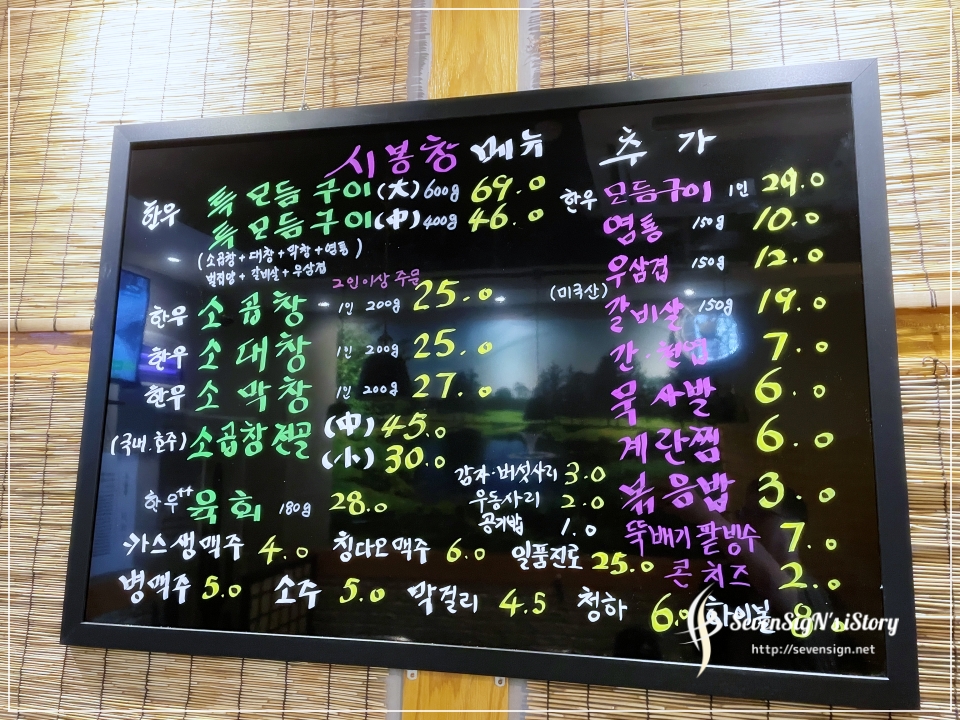 시봉창 메뉴
한우 특 모듬 구이 (大) 600g 69.0
특 모듬 구이 (中) 400g 46.0
(소곱창+대창+막창+염통)
벌집양+갈비살+우삼겹
2인이상 주문
한우 소 곱 창 1인 200g 25.0
한우 소 대 창 1인 200g 25.0
한우 소 막 창 1인 200g 27.0
(국내.호주) 소곱창 전골 (中) 45.0
(小) 30.0
한우++ 육 회 180g 28.0
감자·버섯사리 3.0
우동사리 2.0
공기밥 1.0
카스 생맥주 4.0 칭다오 맥주 6.0 일품진로 25.0
병맥주 5.0 소주 5.0 막걸리 4.5 청하 6.0 하이볼 8.0
추 가
한우 모듬구이 1인 29.0
염통 150g 10.0
우삼겹 150g 12.0
(미국산) 갈비살 150g 19.0
간·천엽 7.0
묵 사발 6.0
계란찜 6.0
볶음밥 3.0
뚝배기 팥빙수 7.0
콘치즈 2.0
SevenSigN's iStory
http://sevensign.net